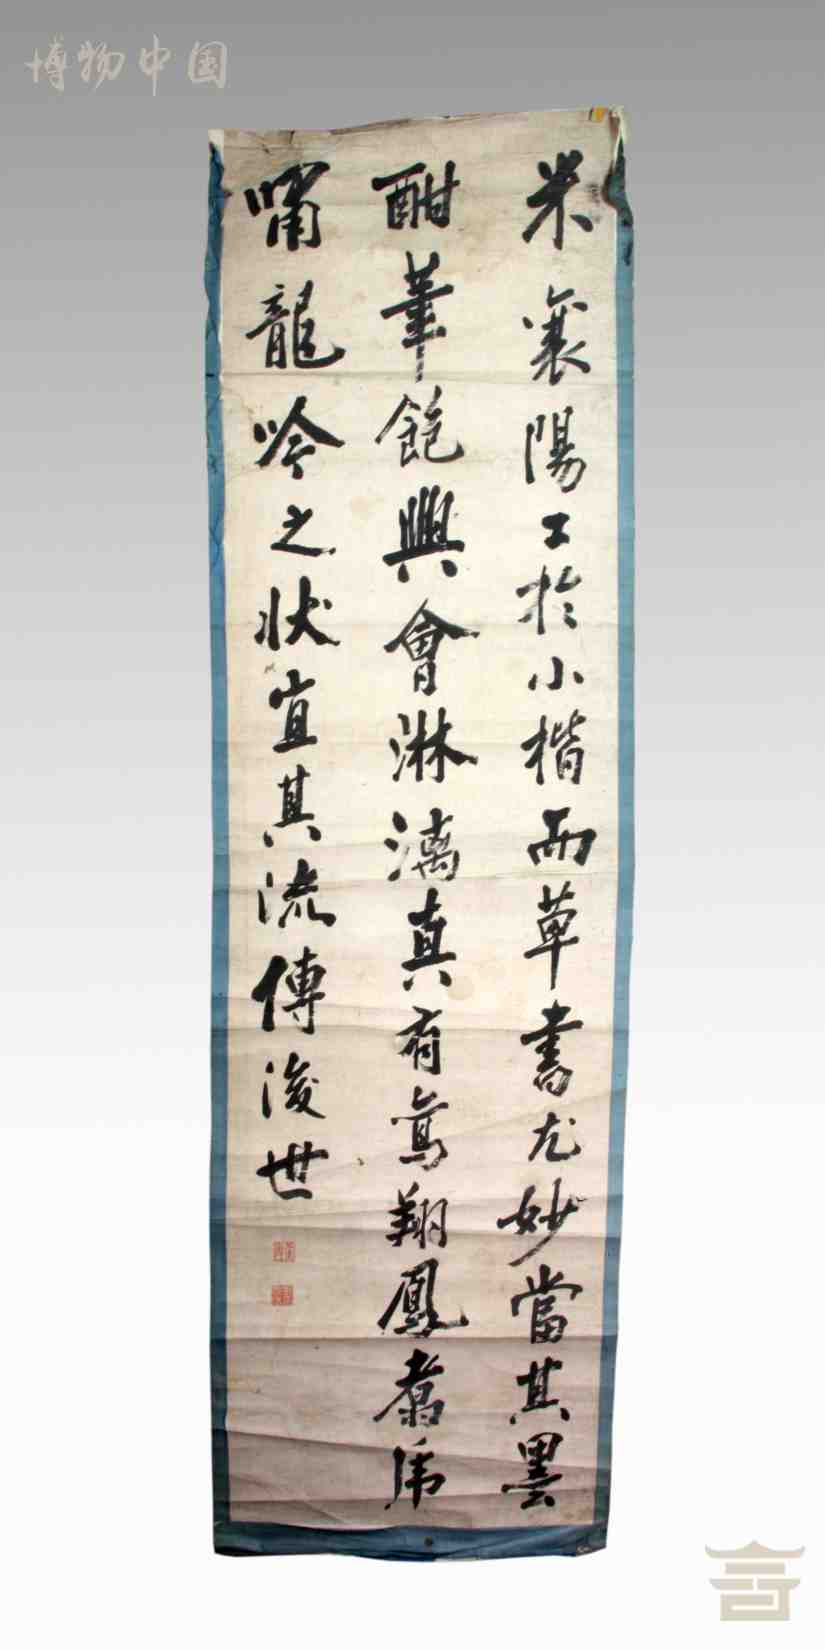 博物中国
米襄陽工於小楷而草書尤妙當其墨
酣筆飽興會淋漓真有鸞翔鳳翥虎
嘯龍吟之狀宜其流傳後世